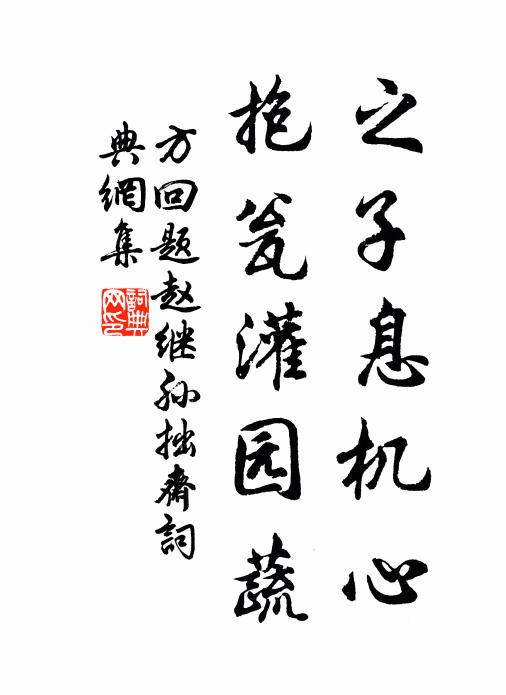 之子息机心
抱瓮灌园蔬
方回题赵继孙拙斋詞
典網集
詞典網印